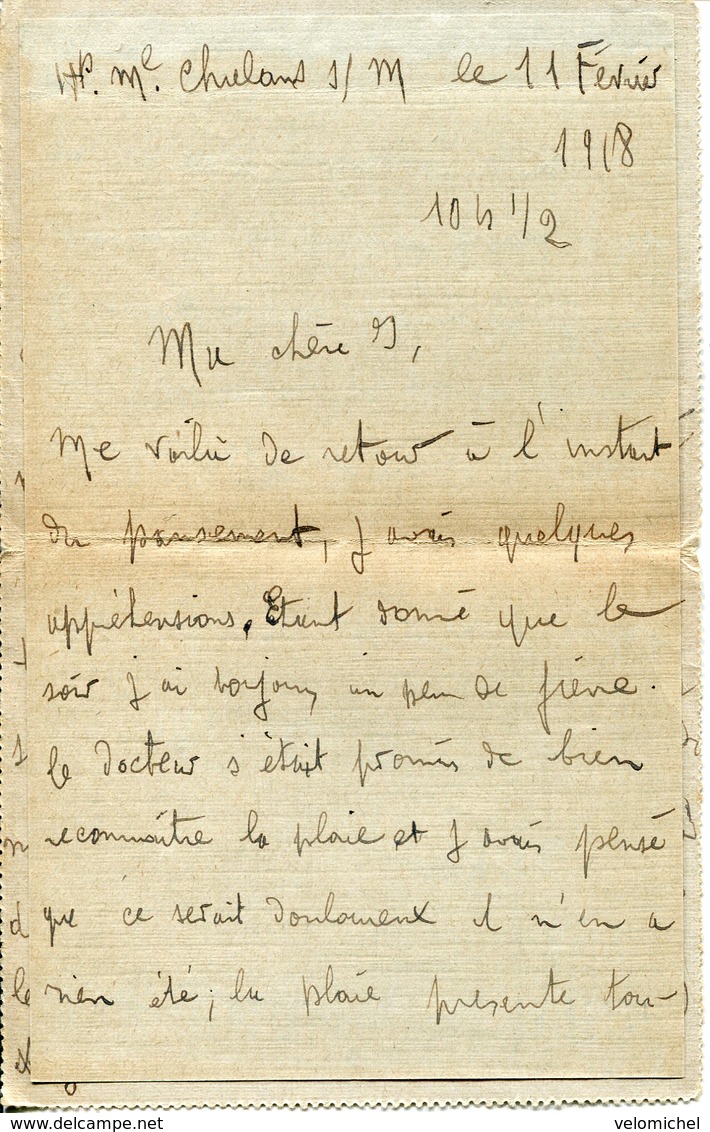 Hp. Me. Chalons s/ M le 11 Février
1918
10 h 1/2
Ma chère
Me voilà de retour à l'instant
du pansement, j avais quelques
appréhensions, Etant donné que le
soir j ai toujours un peu de fièvre.
le docteur s'était promis de bien
reconnaître la plaie et j avais pensé
que ce serait douloureux il n'en a
rien été; la plaie presente tou-
delcampe.net
velomichel